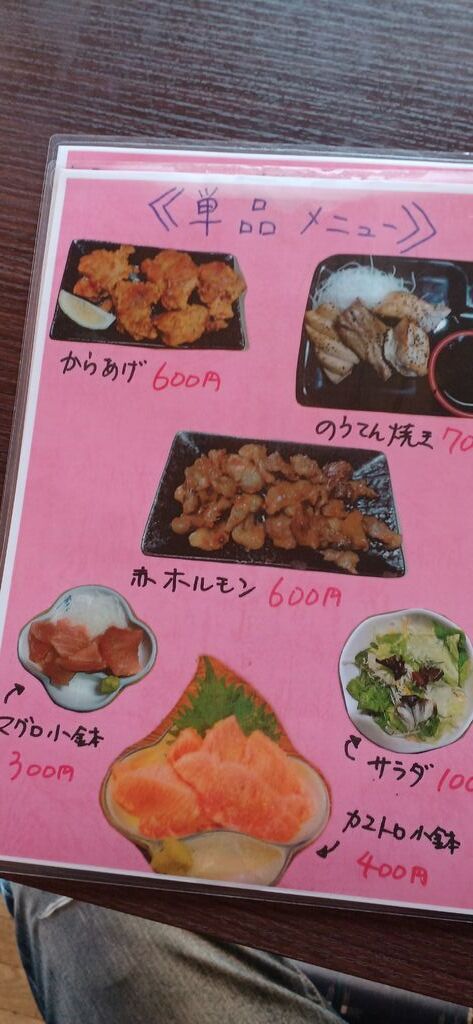 ≪単品メニュー≫
からあげ 600円
のうてん焼き 70
赤ホルモン 600円
マグロ小鉢
300円
サラダ 100
カマトロ小鉢
400円